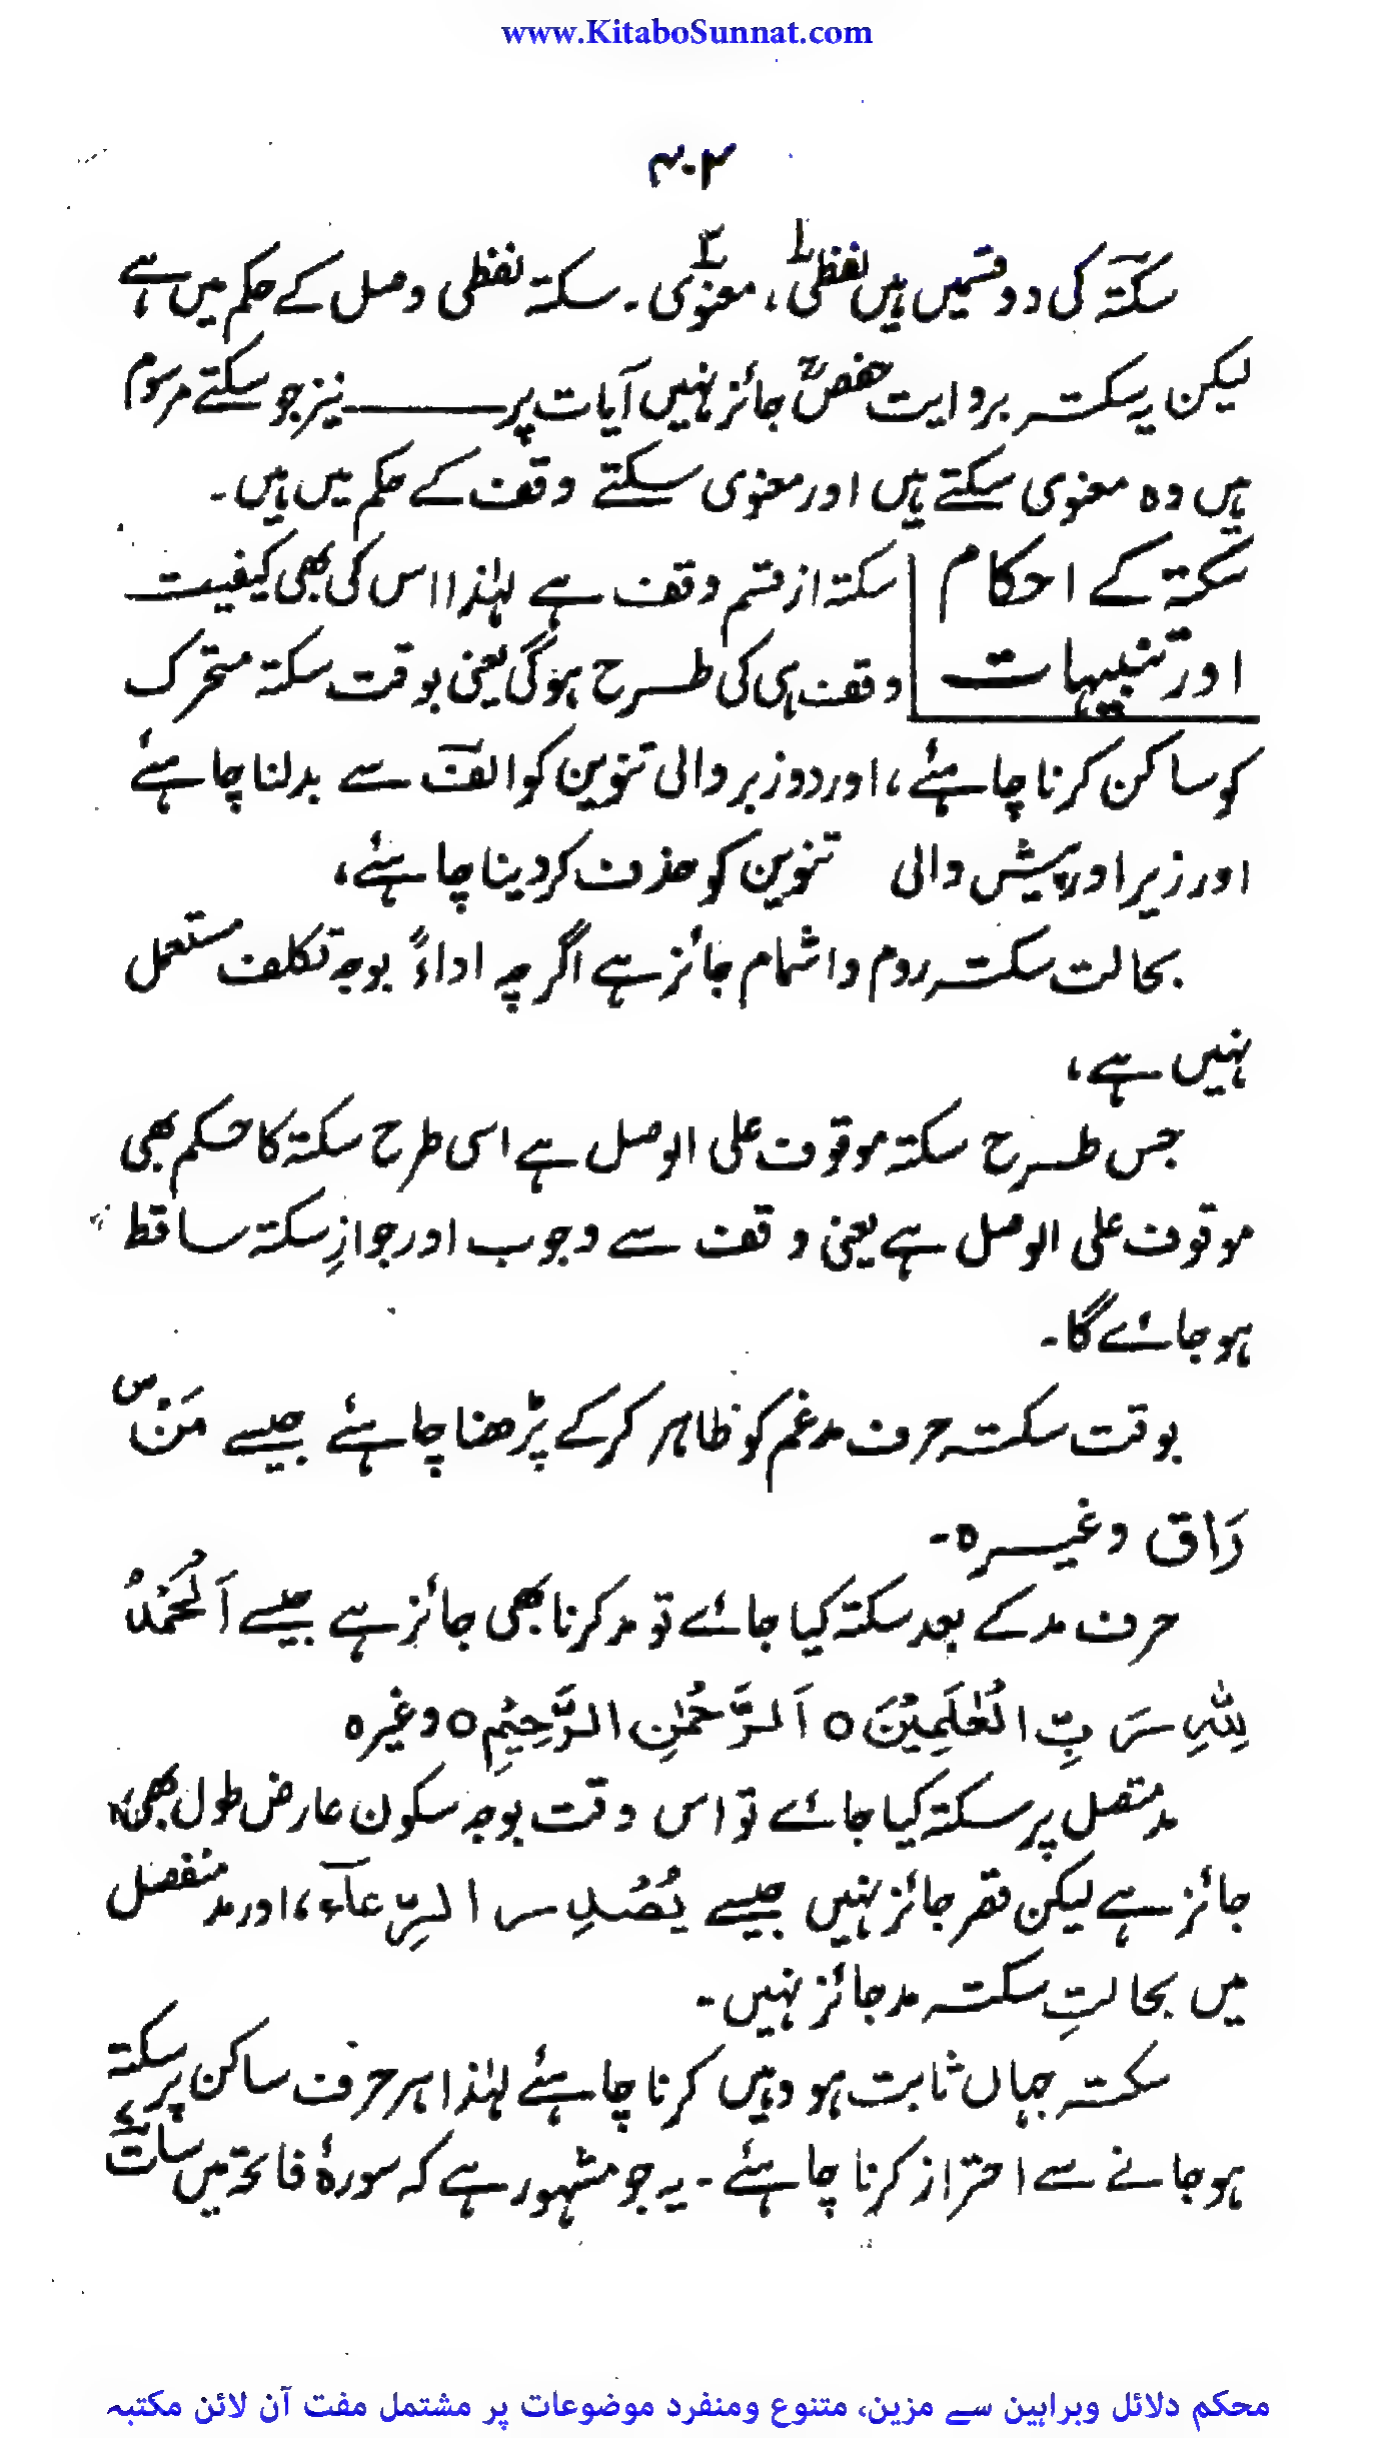 www.KitaboSunnat.com
۴۰۲
سکتہ کی دو قسمیں ہیں لفظی۱، معنوی۲۔ سکتہ لفظی وصل کے حکم میں ہے
لیکن یہ سکتہ بروایت حفصؒ جائز نہیں آیات پر ــــــ نیز جو سکتے مرسوم
ہیں وہ معنوی سکتے ہیں اور معنوی سکتے وقف کے حکم میں ہیں۔
سکتہ کے احکام
اور تنبیہات
سکتہ از قسم وقف ہے لہٰذا اس کی بھی کیفیت
وقف ہی کی طرح ہوگی یعنی بوقت سکتہ متحرک
کو ساکن کرنا چاہئے، اور دو زبر والی تنوین کو الف سے بدلنا چاہئے
اور زیر اور پیش والی تنوین کو حذف کردینا چاہئے،
بحالت سکتہ روم واشمام جائز ہے اگرچہ اداءً بوجہ تکلف مستعمل
نہیں ہے،
جس طرح سکتہ موقوف علی الوصل ہے اسی طرح سکتہ کا حکم بھی
موقوف علی الوصل ہے یعنی وقف سے وجوب اور جوازِ سکتہ ساقط
ہو جائے گا۔
بوقت سکتہ حرف مدغم کو ظاہر کرکے پڑھنا چاہئے جیسے مَنْ س
رَاق وغیرہ۔
حرف مد کے بعد سکتہ کیا جائے تو مد کرنا بھی جائز ہے جیسے اَلْحَمْدُ
لِلّٰہِ رَبِّ الْعٰلَمِیْنَ ○ اَلرَّحْمٰنِ الرَّحِیْمِ ○ وغیرہ
مد متصل پر سکتہ کیا جائے تو اس وقت بوجہ سکون عارض طول بھی
جائز ہے لیکن قصر جائز نہیں جیسے یُصْدِرَ الرِّعَآء، اور مد منفصل
میں بحالتِ سکتہ مد جائز نہیں۔
سکتہ جہاں ثابت ہو وہیں کرنا چاہئے لہٰذا ہر حرف ساکن پر سکتہ
ہوجانے سے احتراز کرنا چاہئے۔ یہ جو مشہور ہے کہ سورۂ فاتحہ میں سات
محکم دلائل وبراہین سے مزین، متنوع ومنفرد موضوعات پر مشتمل مفت آن لائن مکتبہ